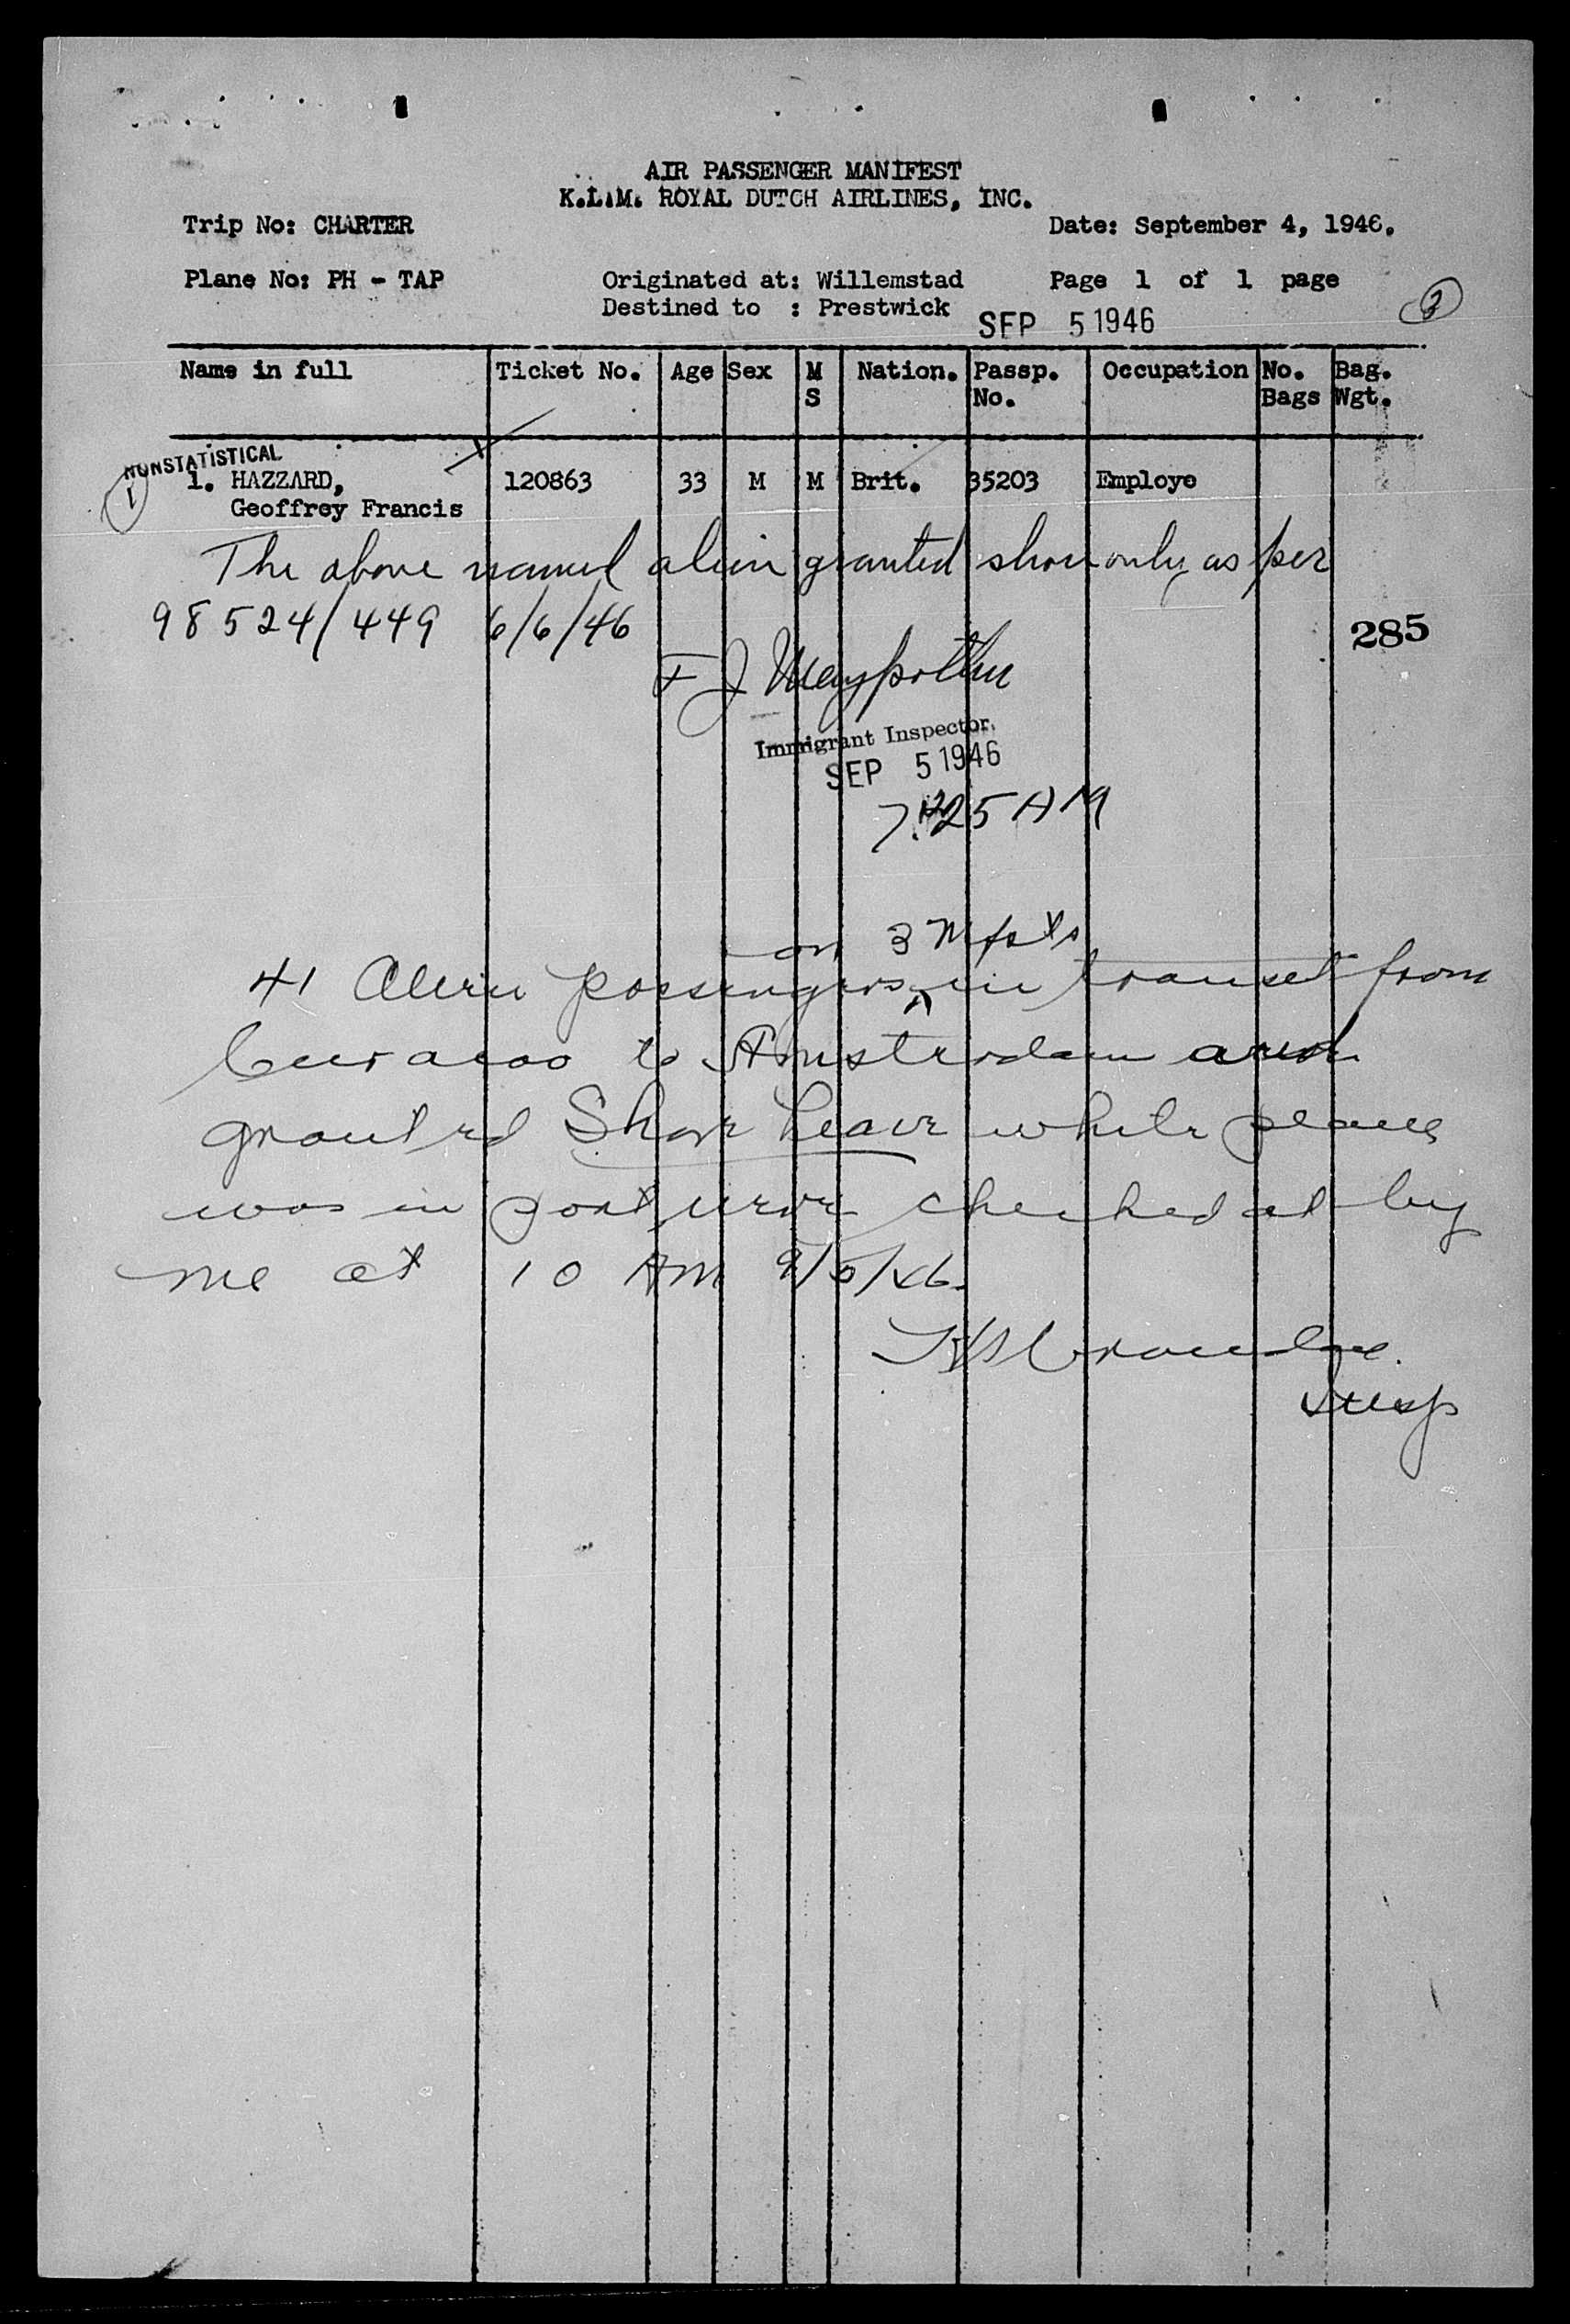 AIR PASSENGER MANIFEST
K.L.M. ROYAL DUTCH AIRLINES, INC.
Trip No: CHARTER Date: September 4, 1946.
Plane No: PH - TAP Originated at: Willemstad Page 1 of 1 page
Destined to : Prestwick
SEP 5 1946
3
Name in full Ticket No. Age Sex M S Nation. Passp. No. Occupation No. Bags Bag. Wgt.
NONSTATISTICAL
1
1. HAZZARD, 120863 33 M M Brit. 35203 Employe
Geoffrey Francis
The above named alien granted shore only as per
98524/449 6/6/46
285
F J
Immigrant Inspector.
SEP 5 1946
7:25 AM
on 3 Mfsts
41 Alien passengers in transit from
Curacao to Amsterdam
granted Shore Leave while plane
was in port were checked at by
me at 10 AM 9/5/46.
Insp